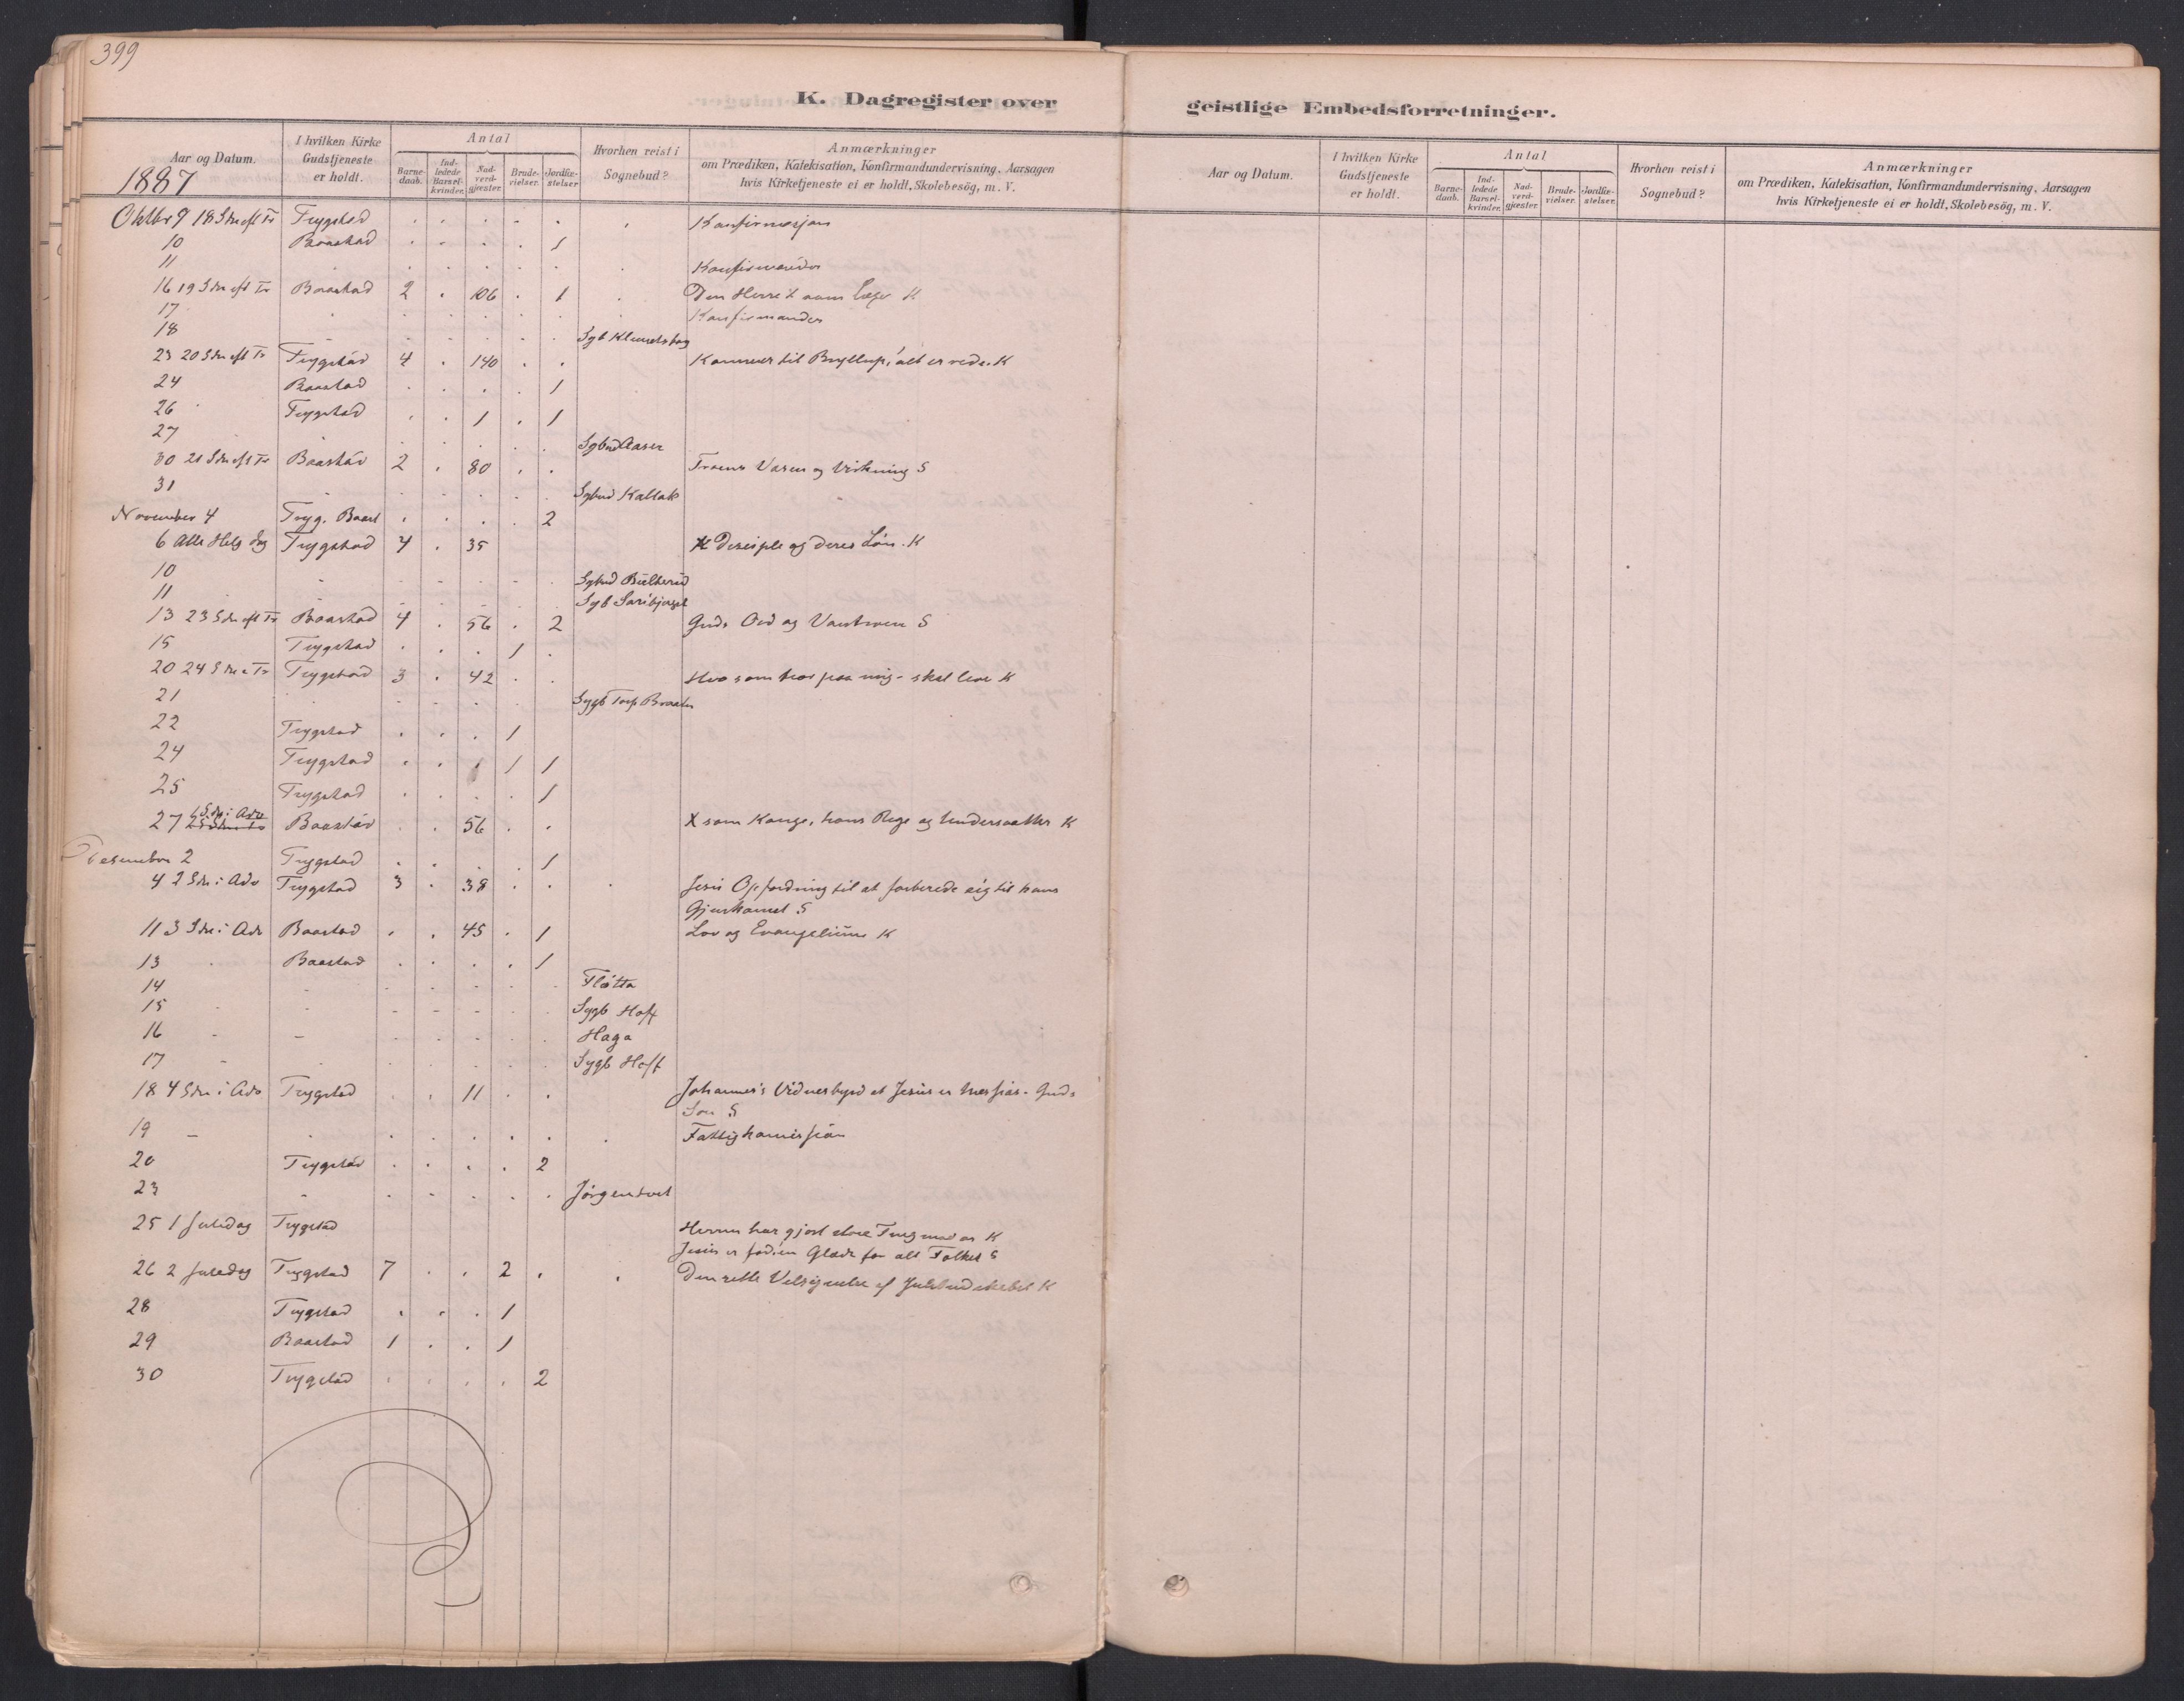 399
K. Dagregister over
geistlige Embedsforretninger.
Aar og Datum.
1887
I hvilken Kirke Gudstjeneste er holdt.
Antal
Barne-daab.
Ind-ledede Barsel-kvinder.
Nad-verd-gjæster.
Brude-vielser.
Jordfæ-stelser
Hvorhen reist i Sognebud?
Anmærkninger
om Prædiken, Katekisation, Konfirmandundervisning, Aarsagen
hvis Kirketjeneste ei er holdt, Skolebesög, m. V.
Oktbr 9 18 Sdn eft Tr Trygstad . . . . . . Konfirmasjon
10 Baastad . . . . 1
11 . . . . . . Konfirmander
16 19 Sdn eft Tr Baastad 2 . 106 . 1 . Den Herre X som Læge K
17 . . . . . . Konfirmander
18 . . . . . Sgb
23 20 Sdn eft Tr Trygstad 4 . 140 . . Kommer til Bryllup, alt er rede. K
24 Baastad . . . . 1
26 Trygstad . . 1 . 1
27 . . . . . Sgbud Aaser
30 21 Sdn eft Tr Baastad 2 . 80 . . Troens Væsen og Virkning S
31 . . . . . Sgbud Kallak
November 4 Tryg. Baast . . . . 2
6 Alle Helg Dg Trygstad 4 . 35 X Disciple og deres Løn. K
10 . . . . . Sgbud
11 . . . . . Sgb
13 23 Sdn eft Tr Baastad 4 . 56 . 2 Guds Ord og Vantroen S
15 Trygstad . . . 1 .
20 24 Sdn e Tr Trygstad 3 . 42 . . Hvo som tror paa mig - skal leve K
21 . . . . Sygb Torp Braaten
22 Trygstad . . . 1
24 Trygstad . . . 1 1
25 Trygstad . . . . 1
27 1 Sdn i Adv Baastad . . 56 . . X som Konge, hans Rige og Undersaatter K
Desember 2 Trygstad . . . . 1
4 2 Sdn i Adv Trygstad 3 . 38 . . . Jesu Opfordning til at forberede sig til hans
Gjenkomst S
11 3 Sdn i Adv Baastad . . 45 . 1 Lov og Evangelium K
13 . Baastad . . . . 1
14 - - - - - - Fløtta
15 - - - - . . Sygb Hoff
16 - - . . . . . Haga
17 - . . . . . Sygb Hoff
18 4 Sdn i Adv Trygstad . . 11 . . Johannes's Vidnesbyrd at Jesus er Messias - Guds
Søn S
19 - . . . . . . . Fattigkomission
20 Trygstad . . . . 2
23 - . - . . . Jørgentvet
25 1 Juledag Trygstad Herren har gjort store Ting mod os K
Jesus er født en Glæde for alt Folket S
26 2 Juledag Trygstad 7 . . 2 . . Den rette Velsignelse af Julebudskabet K
28 Trygstad . . . 1
29 Baastad 1 . . 1
30 Trygstad . . . . 2
Aar og Datum.
I hvilken Kirke Gudstjeneste er holdt.
Antal
Barne-daab.
Ind-ledede Barsel-kvinder.
Nad-verd-gjæster.
Brude-vielser.
Jordfæ-stelser.
Hvorhen reist i Sognebud?
Anmærkninger
om Prædiken, Katekisation, Konfirmandundervisning, Aarsagen
hvis Kirketjeneste ei er holdt, Skolebesög, m. V.